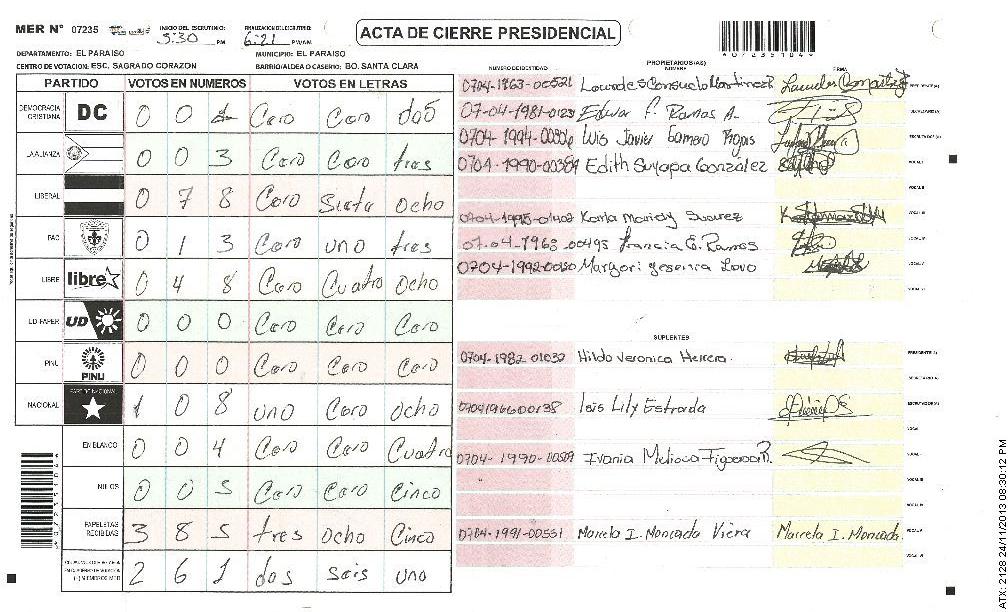 MER Nº 07235 INICIO DEL ESCRUTINIO: 5:30 PM FINALIZACION DEL ESCRUTINIO: 6:21 PM/AM
ACTA DE CIERRE PRESIDENCIAL
DEPARTAMENTO: EL PARAISO MUNICIPIO: EL PARAISO
CENTRO DE VOTACION: ESC. SAGRADO CORAZON BARRIO/ALDEA O CASERIO: BO. SANTA CLARA
PARTIDO VOTOS EN NUMEROS VOTOS EN LETRAS
DEMOCRACIA CRISTIANA DC 0 0 2 Cero Cero dos
LA ALIANZA 0 0 3 Cero Cero tres
LIBERAL 0 7 8 Cero Siete Ocho
PAC 0 1 3 Cero uno tres
LIBRE libre 0 4 8 Cero Cuatro Ocho
UD-FAPER UD 0 0 0 Cero Cero Cero
PINU PINU 0 0 0 Cero Cero Cero
NACIONAL PARTIDO NACIONAL 1 0 8 uno Cero ocho
EN BLANCO 0 0 4 Cero Cero Cuatro
NULOS 0 0 5 Cero Cero Cinco
PAPELETAS RECIBIDAS 3 8 5 tres ocho Cinco
2 6 1 dos seis uno
NUMERO DE IDENTIDAD PROPIETARIOS(AS) NOMBRE FIRMA
0704-1963-00521 Lourdes Consuelo Martinez P
07-04-1981-0123 Edwar F. Ramos A.
0704-1994-00306 Luis Javier Gamero Rojas
0704-1990-00389 Edith Suyapa Gonzalez
0704-1995-01402 Karla Mariely Suarez
07-04-1963-00495 Francia E. Ramos
0704-1992-0020 Margori Yesenia Lovo
SUPLENTES
0704-1982-01032 Hilda Veronica Herrera.
0704196600138 Lois Lily Estrada
0704-1990-00509 Ivania Melissa Figueroa R.
0704-1991-00551 Marcela I. Moncada Viera Marcela I. Moncada
ATX: 2128 24/11/2013 08:30:12 PM